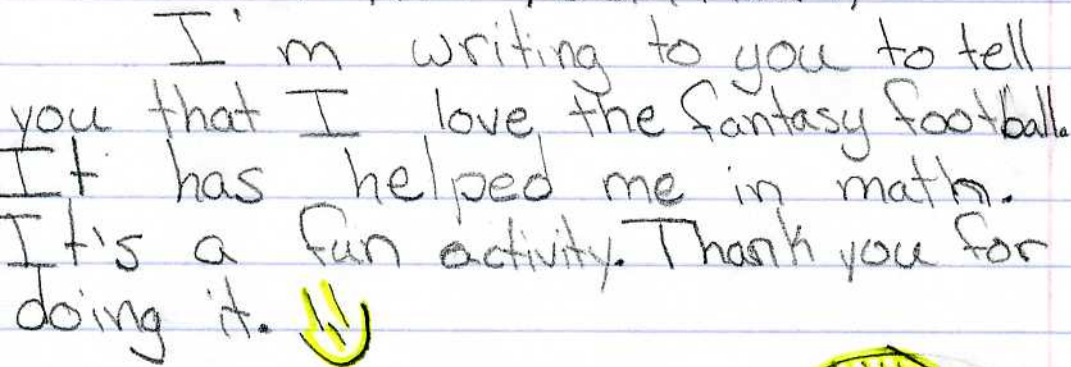 I'm writing to you to tell
you that I love the fantasy football.
It has helped me in math.
It's a fun activity. Thank you for
doing it.